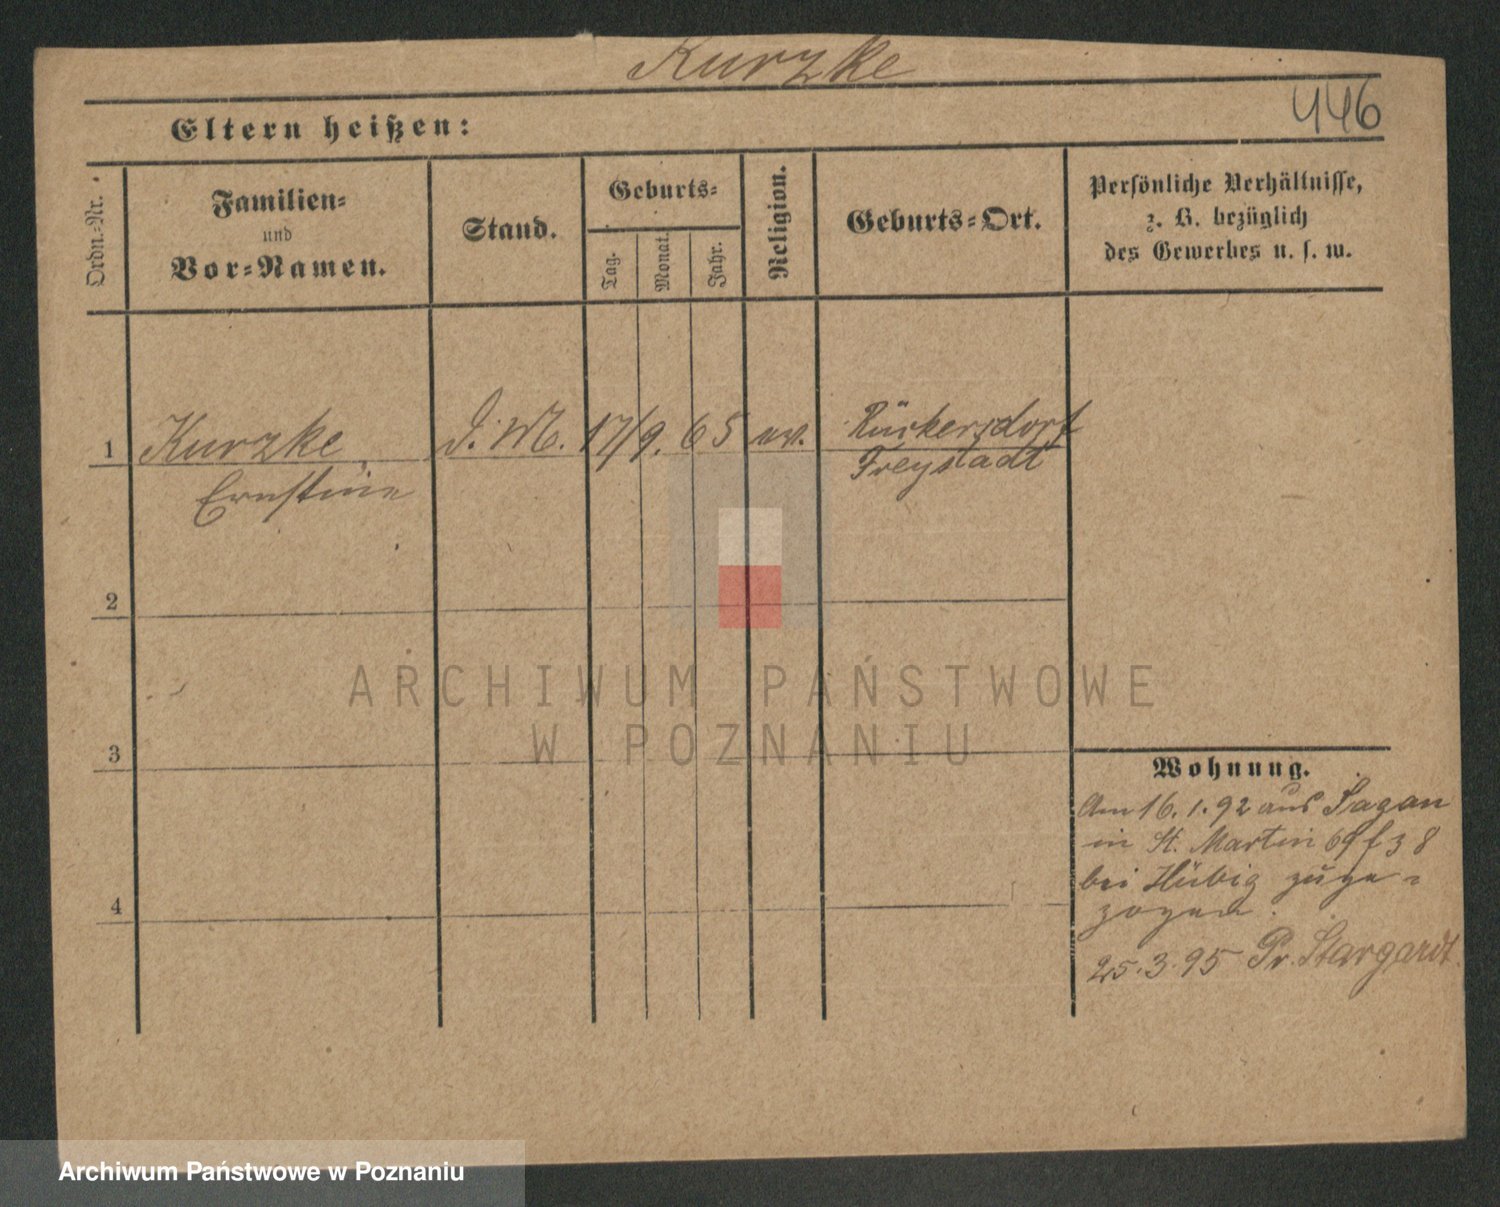 Kurzke
446
Eltern heißen:
Ordn.-Nr.
Familien-
und
Vor-Namen.
Stand.
Geburts-
Tag.
Monat.
Jahr.
Religion.
Geburts-Ort.
Persönliche Verhältnisse,
z. B. bezüglich
des Gewerbes u. s. w.
1
Kurzke,
Ernstine
D. M.
17/9. 65
ev.
Rückersdorf
Freystadt
2
3
4
Wohnung.
Am 16.1.92 aus Sagan
in St. Martin
bei Hübig zuge-
zogen.
25.3.95 Pr. Stargardt.
ARCHIWUM PAŃSTWOWE
W POZNANIU
Archiwum Państwowe w Poznaniu